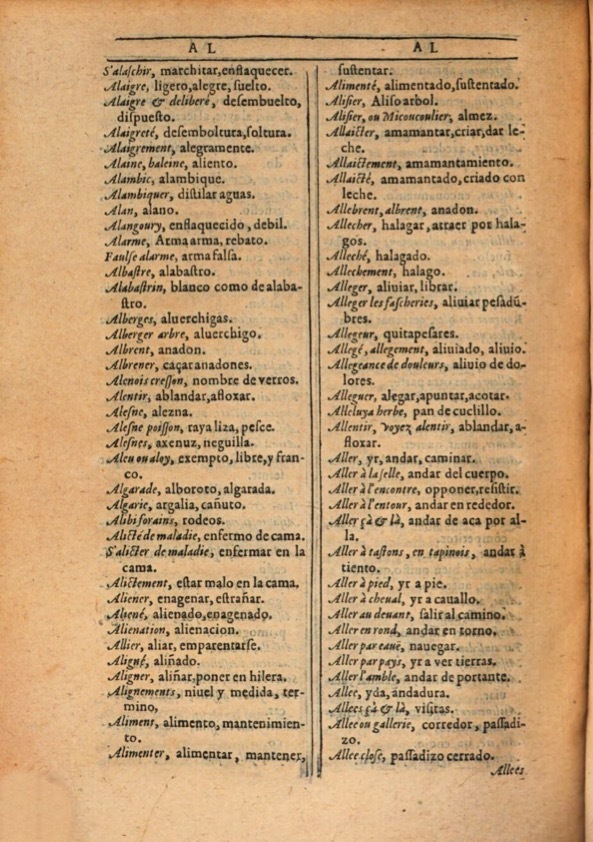 A L
S'alaſchir, marchitar, enflaquecer.
Alaigre, ligero, alegre, ſuelto.
Alaigre & deliberé, deſembuelto,
diſpuesto.
Alaigreté, deſemboltura, ſoltura.
Alaigrement, alegramente.
Alaine, haleine, aliento.
Alambic, alambique.
Alambiquer, diſtilar aguas.
Alan, alano.
Alangoury, enflaquecido, debil.
Alarme, Arma arma, rebato.
Faulſe alarme, arma falſa.
Albaſtre, alabaſtro.
Alabaſtrin, blanco como de alaba-
ſtro.
Alberges, aluerchigas.
Alberger arbre, aluerchigo.
Albrent, anadon.
Albrener, caçar anadones.
Alenois creſſon, nombre de verros.
Alentir, ablandar, afloxar.
Aleſne, alezna.
Aleſne poiſſon, raya liza, peſce.
Aleſnes, axenuz, neguilla.
Aleu ou aloy, exempto, libre, y fran
co.
Algarade, alboroto, algarada.
Algarie, argalia, cañuto.
Alibi forains, rodeos.
Alicté de maladie, enfermo de cama.
S'alicter de maladie, enfermar en la
cama.
Alictement, estar malo en la cama.
Aliener, enagenar, eſtrañar.
Aliené, alienado, enagenado.
Alienation, alienacion.
Allier, aliar, emparentarſe.
Aligné, aliñado.
Aligner, aliñar, poner en hilera.
Alignements, niuel y medida, ter-
mino,
Aliment, alimento, mantenimien-
to.
Alimenter, alimentar, mantener,
A L
ſuſtentar.
Alimenté, alimentado, ſuſtentado.
Aliſier, Aliſo arbol.
Aliſier, ou Micoucoulier, almez.
Allaicter, amamantar, criar, dar le-
che.
Allaictement, amamantamiento.
Allaicté, amamantado, criado con
leche.
Allebrent, albrent, anadon.
Allecher, halagar, atraer por hala-
gos.
Alleché, halagado.
Allechement, halago.
Alleger, aliuiar, librar.
Alleger les faſcheries, aliuiar peſadũ-
bres.
Allegeur, quitapeſares.
Allegé, allegement, aliuiado, aliuio.
Allegeance de douleurs, aliuio de do-
lores.
Alleguer, alegar, apuntar, acotar.
Alleluya herbe, pan de cuclillo.
Allentir, voyez alentir, ablandar, a-
floxar.
Aller, yr, andar, caminar.
Aller à la ſelle, andar del cuerpo.
Aller à l'encontre, opponer, reſiſtir.
Aller à l'entour, andar en rededor.
Aller çà & là, andar de aca por al-
la.
Aller à taſtons, en tapinois, andar à
tiento.
Aller à pied, yr a pie.
Aller à cheual, yr a cauallo.
Aller au deuant, ſalir al camino.
Aller en rond, andar en torno.
Aller par eaue, nauegar.
Aller par pays, yr a ver tierras.
Aller l'amble, andar de portante.
Allee, yda, andadura.
Allees çà & là, viſitas.
Allee ou gallerie, corredor, paſſadi-
zo.
Allee cloſe, paſſadizo cerrado.
Allees